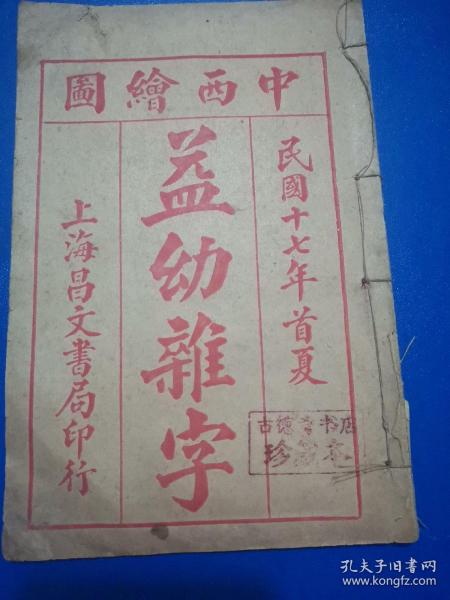 中西繪圖
民國十七年首夏
益幼雜字
上海昌文書局印行
古德 书店
珍 本
孔夫子旧书网
www.kongfz.com